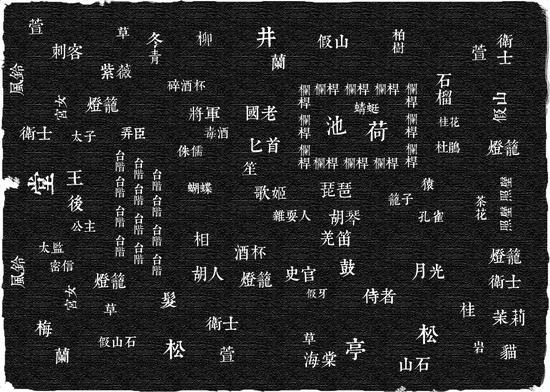 萱
刺客
草
冬青
柳
井
蘭
假山
柏樹
萱
衛士
風鈴
宮女
紫薇
燈籠
碎酒杯
將軍
國老
毒酒
匕首
欄桿 欄桿 欄桿 欄桿 欄
桿
蜻蜓
池
荷
欄桿
欄桿
欄桿 欄桿 欄桿 欄桿
石榴
桂花
杜鵑
假山
燈籠
衛士
太子
弄臣
侏儒
笙
堂
王
後
公主
台階 台階 台階 台階
台階 台階 台階 台階
台階 台階 台階 台階
蝴蝶
歌姬
琵琶
籠子
猿
孔雀
茶花
照壁
照壁
雜耍人
胡琴
羌笛
相
酒杯
太監
密信
風鈴
宮女
燈籠
草
髮
胡人
燈籠
史官
鼓
假牙
侍者
月光
燈籠
衛士
桂
茉莉
梅
蘭
假山石
松
衛士
萱
草
海棠
亭
松
山石
岩
貓